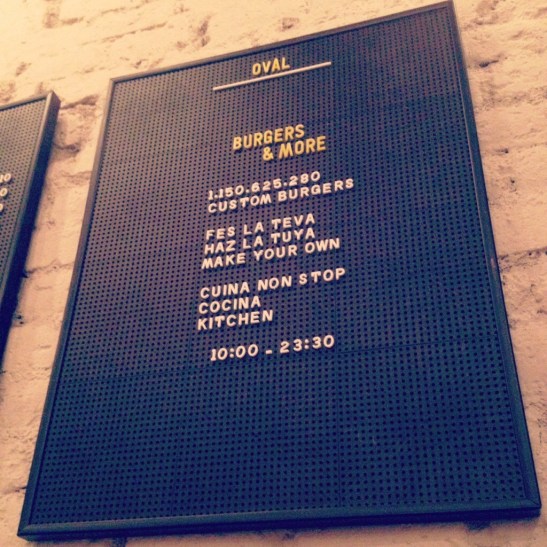 OVAL
BURGERS
& MORE
1.150.625.280
CUSTOM BURGERS
FES LA TEVA
HAZ LA TUYA
MAKE YOUR OWN
CUINA NON STOP
COCINA
KITCHEN
10:00 - 23:30